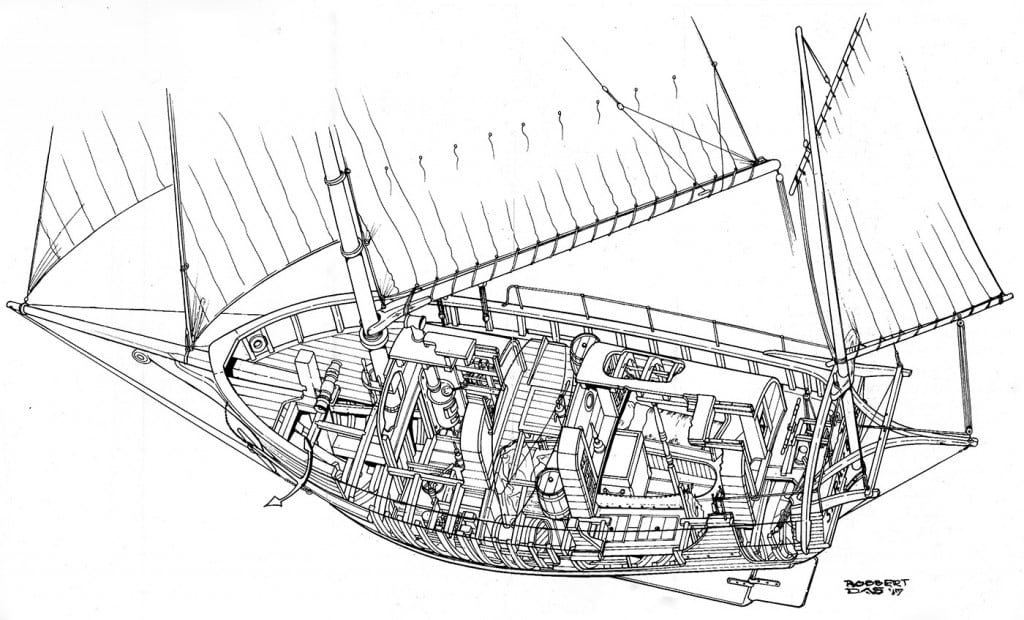 ROBBERT
DAS '17